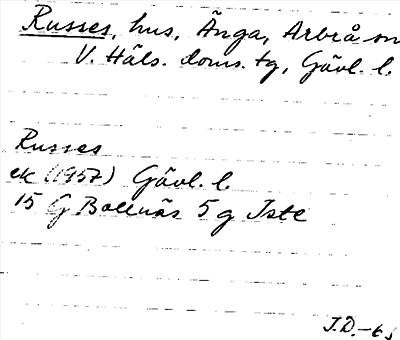 Russes, hus, Änga, Arbrå sn
V. Häls. doms. tg, Gävl. l.
Russes
ek (1957) Gävl. l.
15 G Bollnäs 5 g Iste
J.D.-65